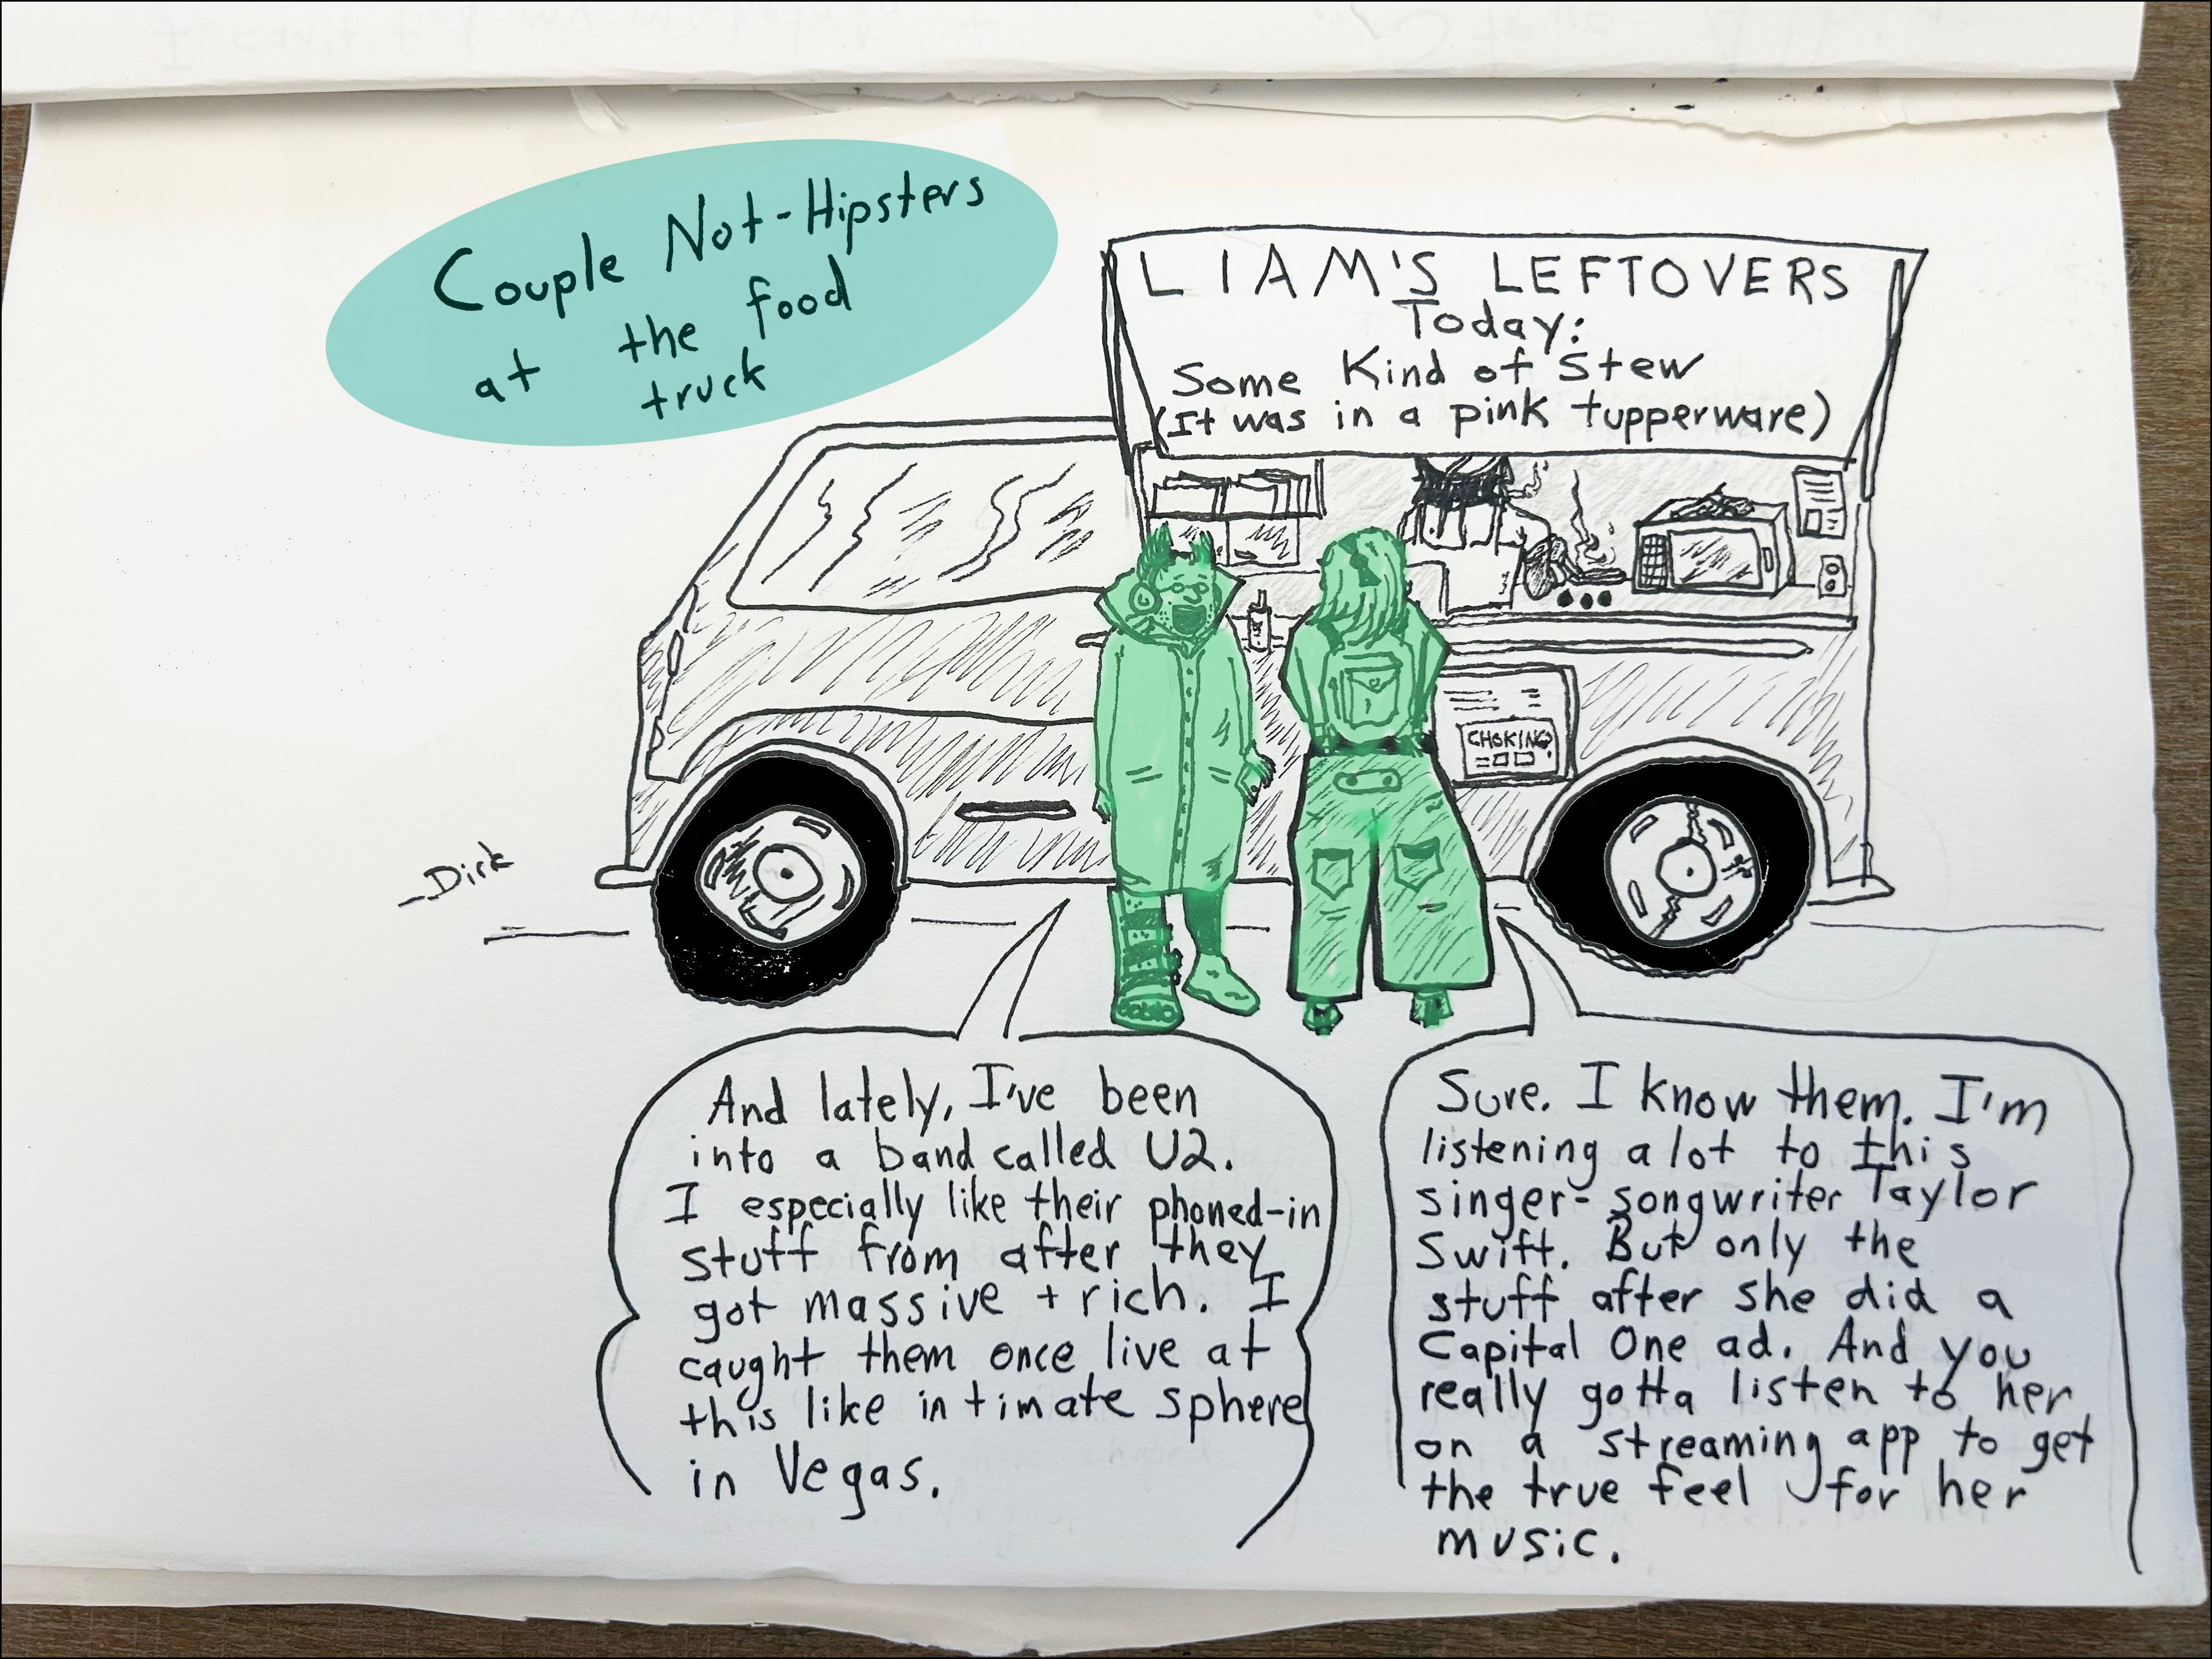 Couple Not-Hipsters
at the food
truck
LIAM'S LEFTOVERS
Today:
Some Kind of Stew
(It was in a pink tupperware)
CHOKING?
-Dirk
And lately, I've been
into a band called U2.
I especially like their phoned-in
stuff from after they
got massive + rich. I
caught them once live at
this like intimate sphere
in Vegas.
Sure. I know them. I'm
listening a lot to this
singer-songwriter Taylor
Swift. But only the
stuff after she did a
Capital One ad. And you
really gotta listen to her
on a streaming app to get
the true feel for her
music.